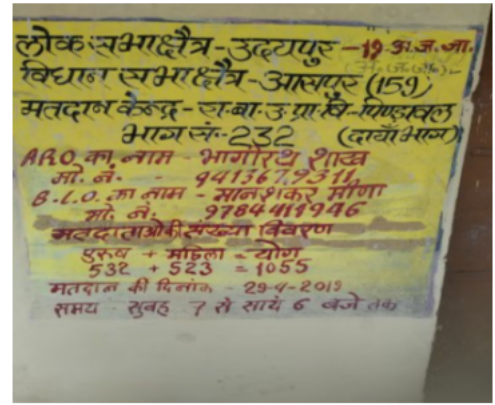 लोक सभा क्षैत्र - उदयपुर - 19 अ.ज.जा.
विधान सभा क्षैत्र - आसपुर (159)
मतदान केन्द्र - रा.बा.उ.प्रा.वि. पिण्डावल
भाग सं.- 232 (दायाँ भाग)
A.R.O. का नाम - भागीरथ शाख
मो. नं. - 941367 9311
B.L.O. का नाम - मानशंकर मीणा
मो. नं. 9784411946
मतदाताओ की संख्या विवरण
पुरुष + महिला = योग
532 + 523 = 1055
मतदान की दिनांक - 29-4-2019
समय - सुबह 7 से सायं 6 बजे तक